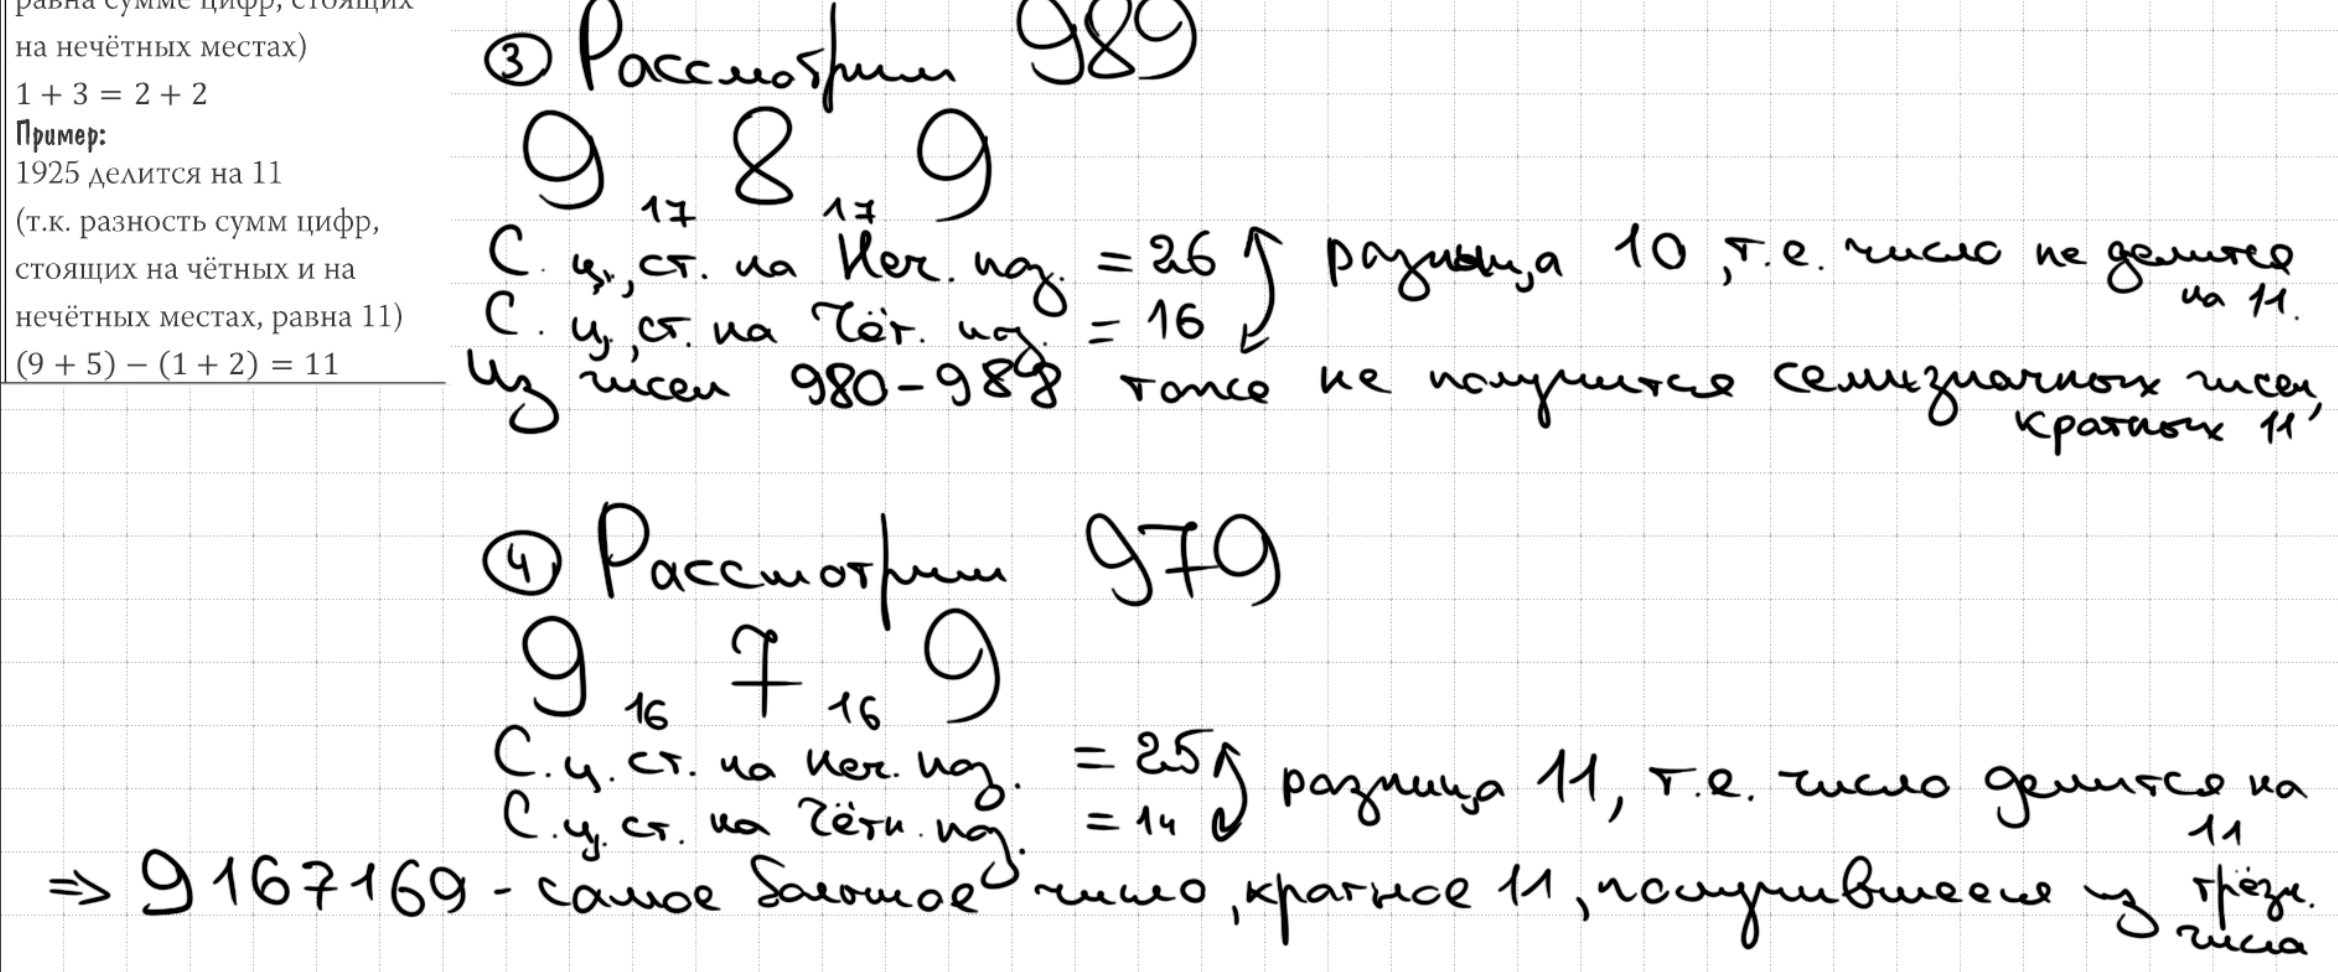 равна сумме цифр, стоящих
на нечётных местах)
1 + 3 = 2 + 2
Пример:
1925 делится на 11
(т.к. разность сумм цифр,
стоящих на чётных и на
нечётных местах, равна 11)
(9 + 5) − (1 + 2) = 11
③ Рассмотрим 989
9 8 9
17 17
С. ц., ст. на Неч. поз. = 26
разница 10, т.е. число не делится
на 11.
С. ц., ст. на Чёт. поз. = 16
Из чисел 980-988 тоже не получится семизначных чисел,
кратных 11
④ Рассмотрим 979
9 7 9
16 16
С.ц. ст. на неч. поз. = 25
разница 11, т.е. число делится на
11
С.ц. ст. на Чётн. поз. = 14
=> 9167169 - самое большое число, кратное 11, получившееся из трёзн.
числа